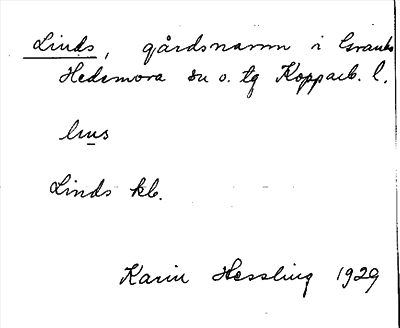 Linds, gårdsnamn i Granbo
Hedemora sn o. tg Kopparb. l.
lins
Linds kb.
Karin Hessling 1929